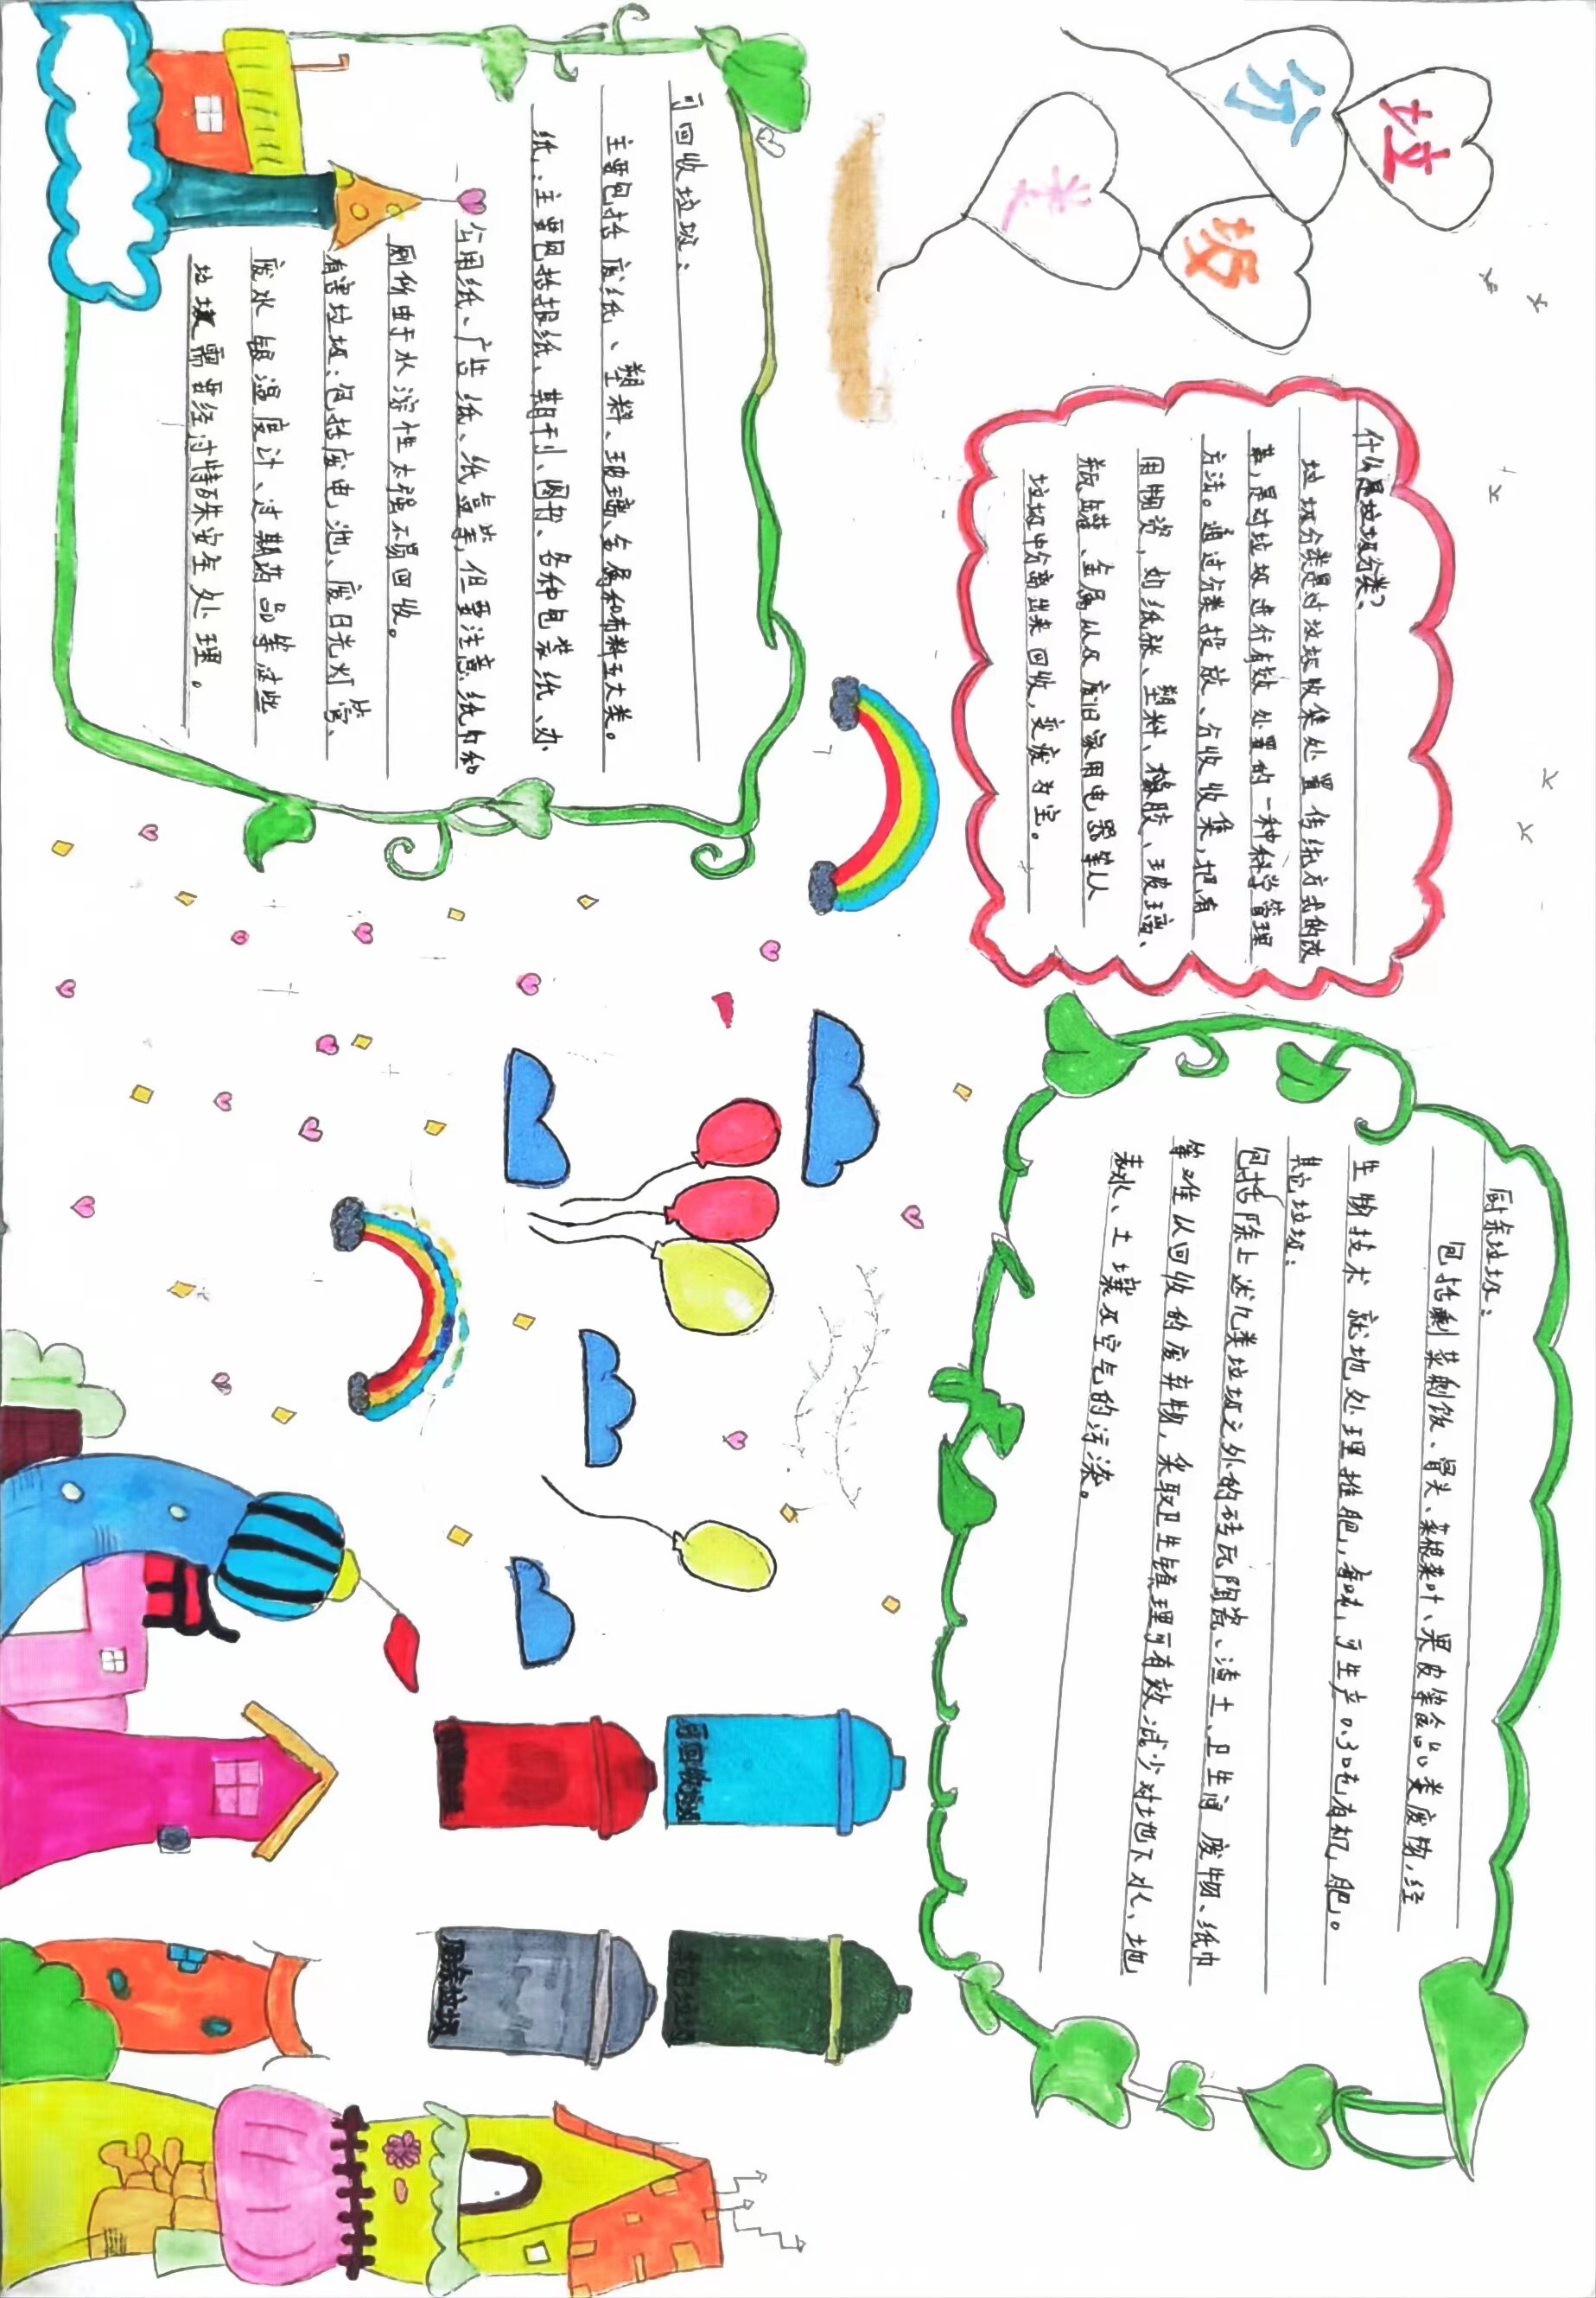 垃
圾
分
类
什么是垃圾分类?
垃圾分类是过垃圾收集处置传统方式的改
革,是对垃圾进行有效处置的一种科学管理
方法。通过分类投放、分收收集,把有
用物资,如纸张、塑料、橡胶、玻璃、
瓶罐、金属以及废旧家用电器等从
垃圾中分离出来回收,变废为宝。
厨余垃圾:
包括剩菜剩饭、骨头、菜根菜叶、果皮等食品类废物,经
生物技术就地处理堆肥,每吨,可生产0.3吨有机肥。
其它垃圾:
包括除上述几类垃圾之外的砖瓦陶瓷、渣土、卫生间废物、纸巾
等难以回收的废弃物,采取卫生填埋可有效减少对地下水、地
表水、土壤及空气的污染。
可回收垃圾:
主要包括废纸、塑料、玻璃、金属和布料五大类。
纸:主要包括报纸、期刊、图书、各种包装纸、办
公用纸、广告纸、纸盒等,但要注意纸巾和
厕所由于水溶性太强不易回收。
有害垃圾:包括废电池、废日光灯管、
废水银温度计、过期药品等这些
垃圾需要经过特殊安全处理。
可回收垃圾
厨余垃圾